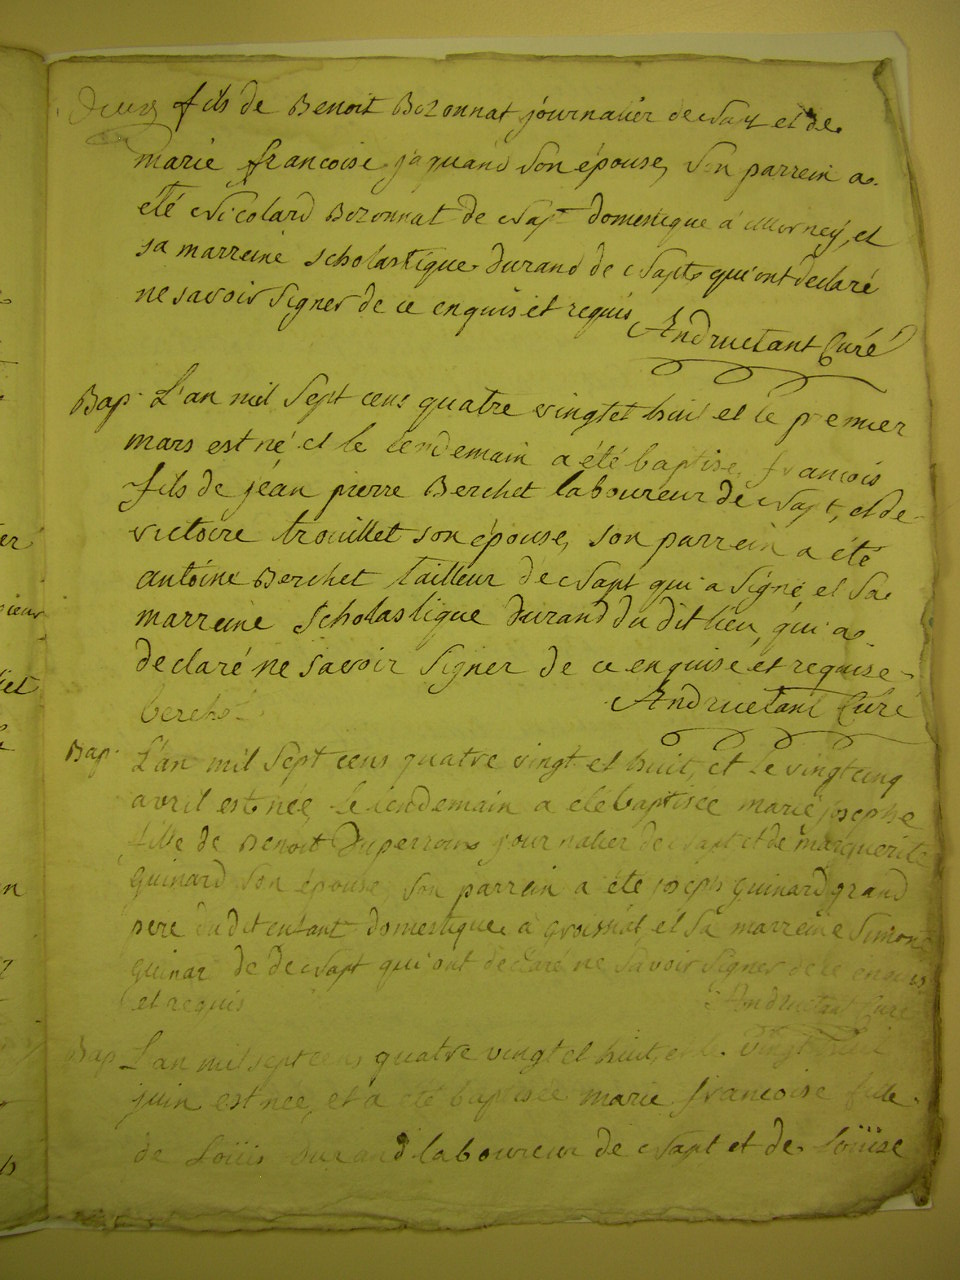 fils de Benoit Bozonnat journalier de Napt et de
marie francoise jaquand son épouse, son parrein a
été Nicolard Bozonnat de Napt domestique a Mornéy, et
sa marreine scholastique durand de Napt qui ont declaré
ne savoir signer de ce enquis et requis
Andruetant Curé
Bap. L'an mil sept cens quatre vingt et huit et le premier
mars est né et le lendemain a été baptisé françois
fils de jéan pierre Berchet laboureur de Napt, et de
victoire trouillet son épouse, son parrein a été
antoine Berchet tailleur de Napt qui a signé et sa
marreine scholastique durand du dit lieu, qui a
declaré ne savoir signer de ce enquise et requise
Andruetant Curé
berché
Bap. L'an mil sept cens quatre vingt et huit, et le vingt cinq
avril est née, le lendemain a été baptisée marie josephe
fille de Benoit Duperron journalier de Napt et de marguerite
guinard son épouse, son parrein a été joseph guinard grand
pere du dit enfant domestique à groissiat, et sa marreine Simone
guinar de de Napt qui ont declaré ne savoir signer de ce enquis
et requis
Andruetant Curé
Bap. L'an mil sept cens quatre vingt et huit, et le vingt huit
juin est née, et a été baptisée marie francoise fille
de Loüis durand laboureur de Napt et de Loüise